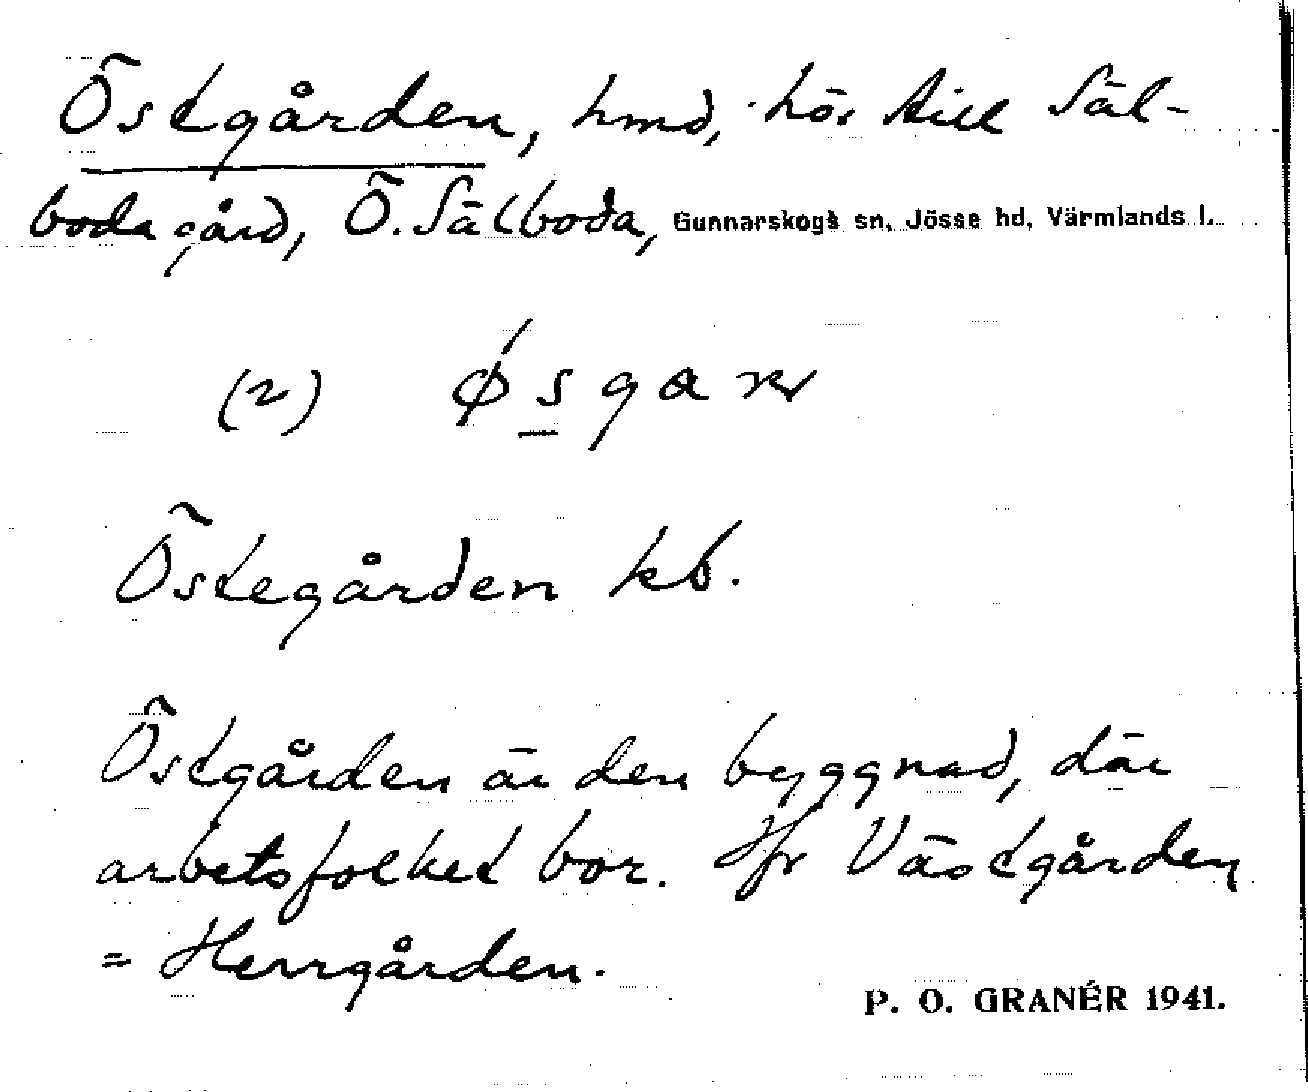 Östgården, hmd, hör till Säl-
boda gård, Ö. Sälboda, Gunnarskogs sn, Jösse hd, Värmlands l.
(2)
Östegården kb.
Östgården är den byggnad, där
arbetsfolket bor. Jfr Västgården
= Herrgården.
P. O. GRANÉR 1941.